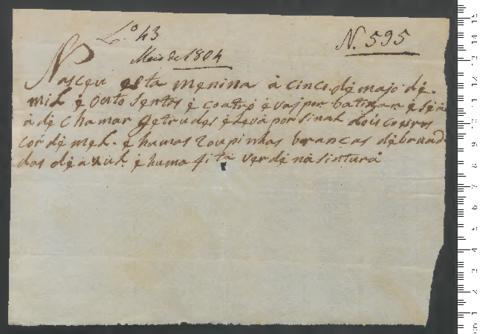 Lº 43
Nº 595
Maio de 1804
Nasceu esta menina à cinco de majo de
mil e Ooito sentos e coatro e vaj por batizar e
a de chamar Getrudes e leva por sinal dois
cor de mel. e humas roupinhas brancas de
das de azul e huma fita verde na sintura